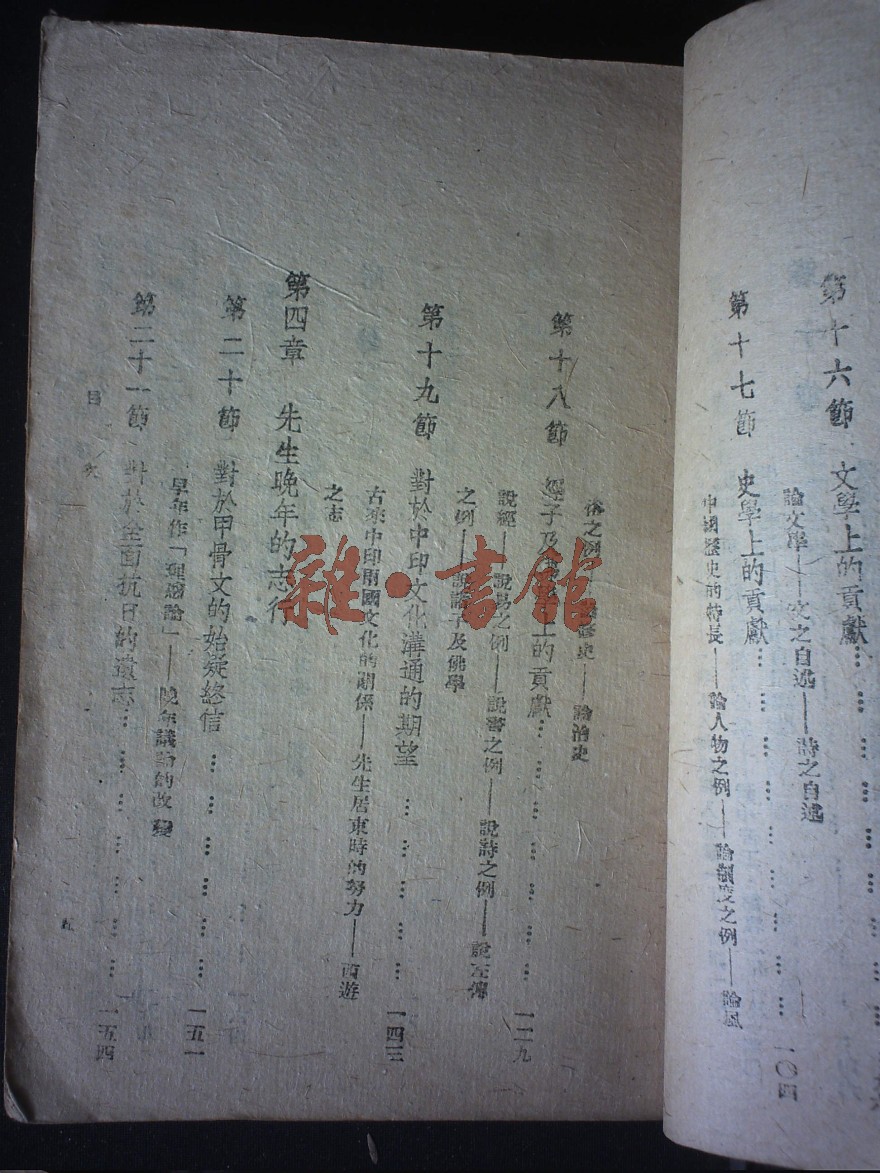 第十六節 文學上的貢獻
論文學——文之自述——詩之自述
一〇四
第十七節 史學上的貢獻
中國歷史的特長——論人物之例——論制度之例——論風
俗之例 史——論治史
第十八節 經子及 上的貢獻 一二九
說經——說易之例——說書之例——說詩之例——說左傳
之例——說諸子及佛學
第十九節 對於中印文化溝通的期望 一四三
古來中印兩國文化的關係——先生居東時的努力——西遊
之志
第四章 先生晚年的志行
第二十節 對於甲骨文的始疑終信 一五一
早年作「理惑論」——晚年議論的改變
第二十一節 對於全面抗日的遺志 一五四
目次
五
雜·書館